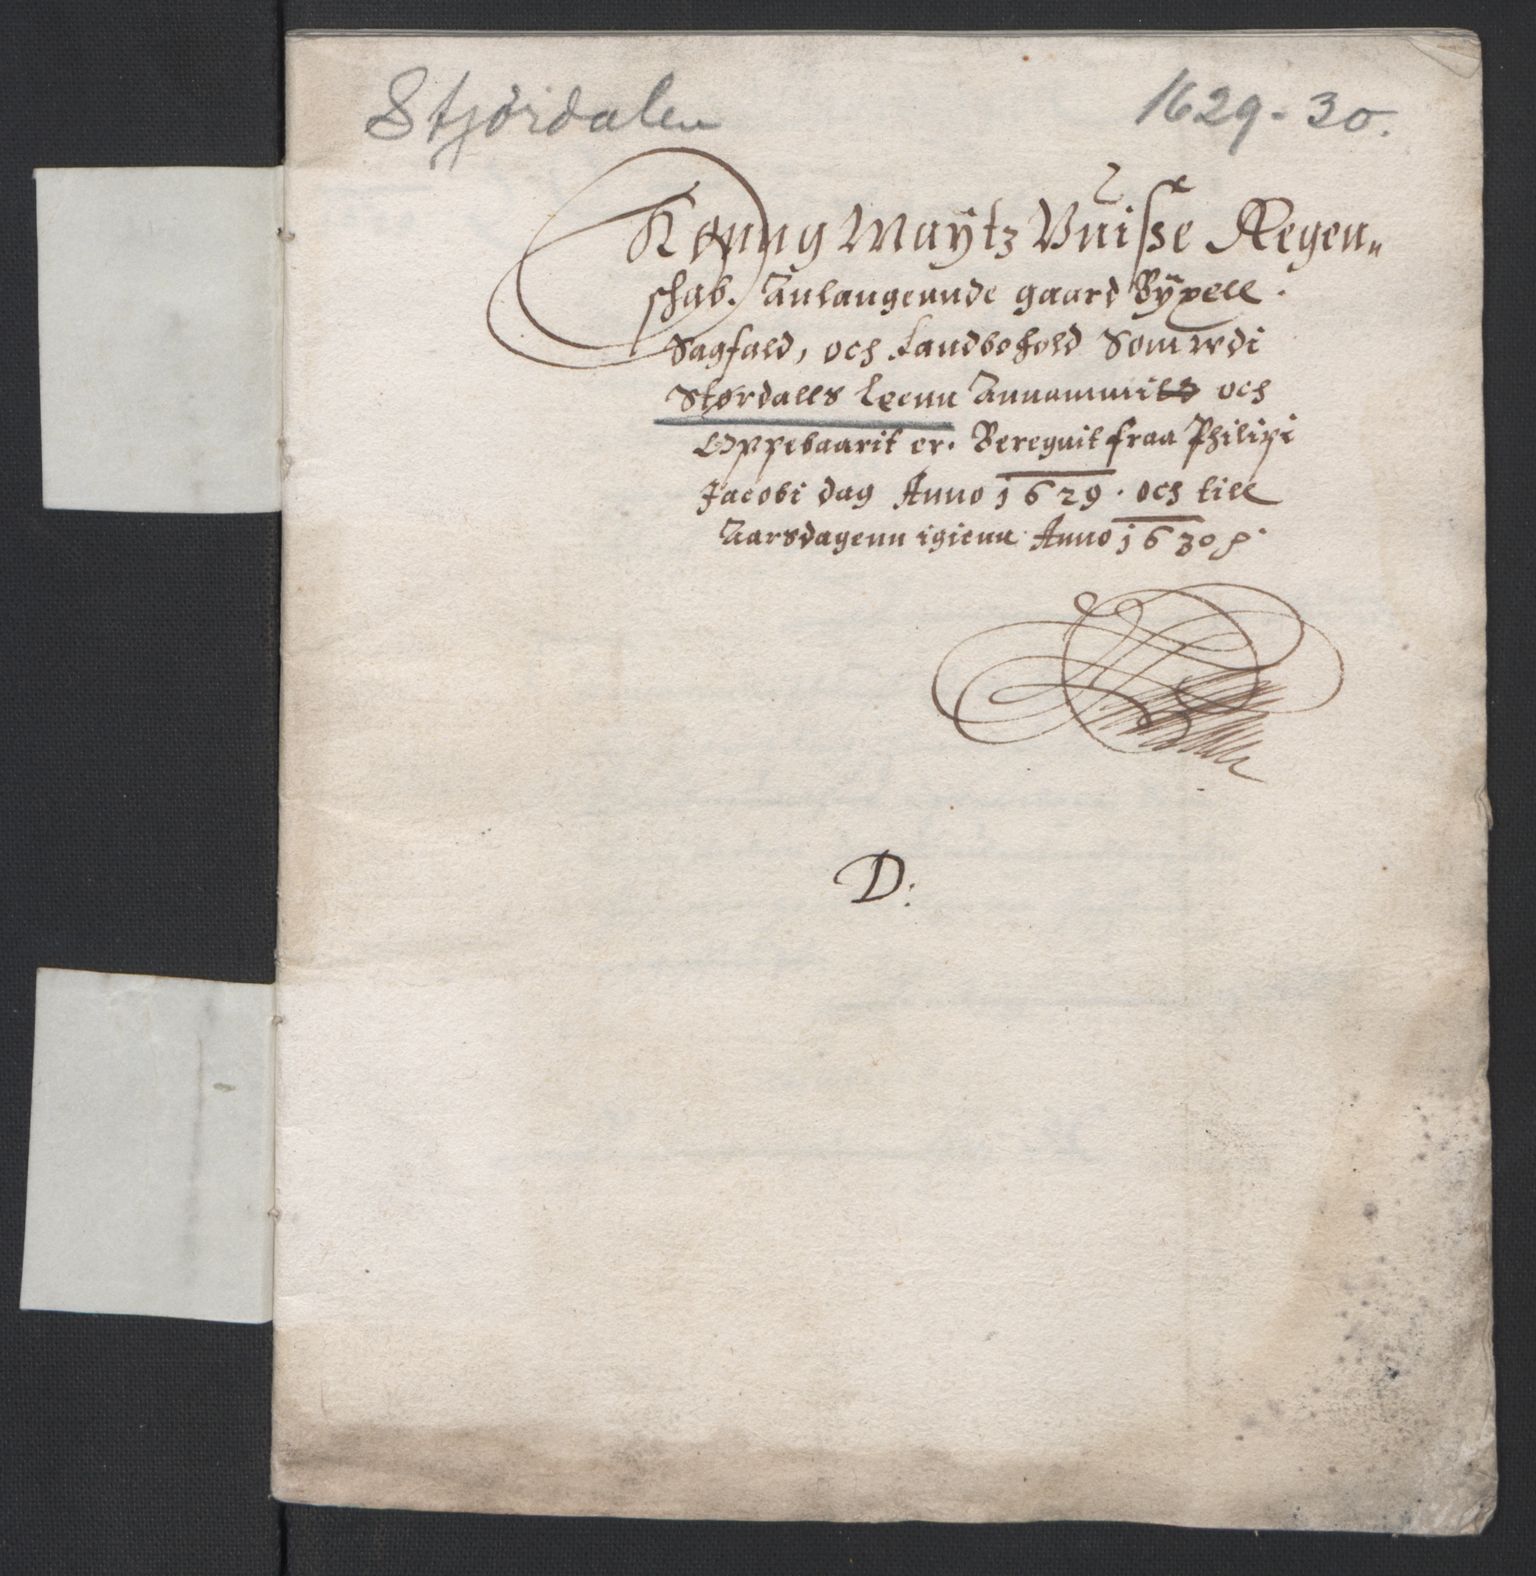 Stjördalen 1629-30.
Konng Maÿtz Vuisse Regen„
schab. Anlangeunde gaard Bÿxell.
Sagfald, och Landbohold Som udi
Størdalls Leenn Annammitt och
Oppebaarit er. Beregnit fraa Philipi
Jacobi dag Anno 1629. och till
Aarsdagenn igienn Anno 1630
D: